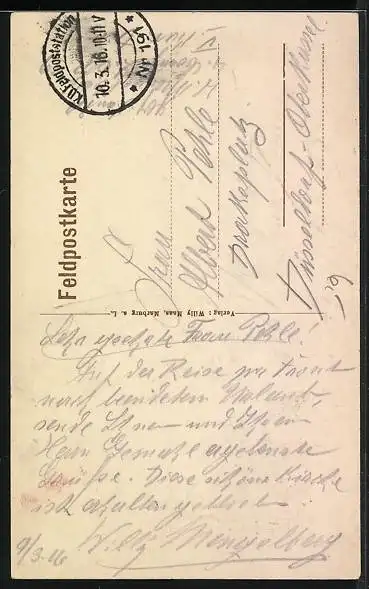 K.D. Feldpoststation
10.3.16.10-11 V
* Nr. 161 *
Feldpostkarte
Frau
Albert Pehle
Drakeplatz
Düsseldorf-Oberkassel
Verlag: Willy Maas, Marburg a. L.
Sehr geehrte Frau Pehle!
Auf der Reise zur Front
nach beendetem Urlaub,
sende Ihnen und Ihrem
Herrn Gemahl ergebenste
Grüsse. Diese schöne Kirche
ist erhalten geblieben.
9/3-16
Willy Mengelberg